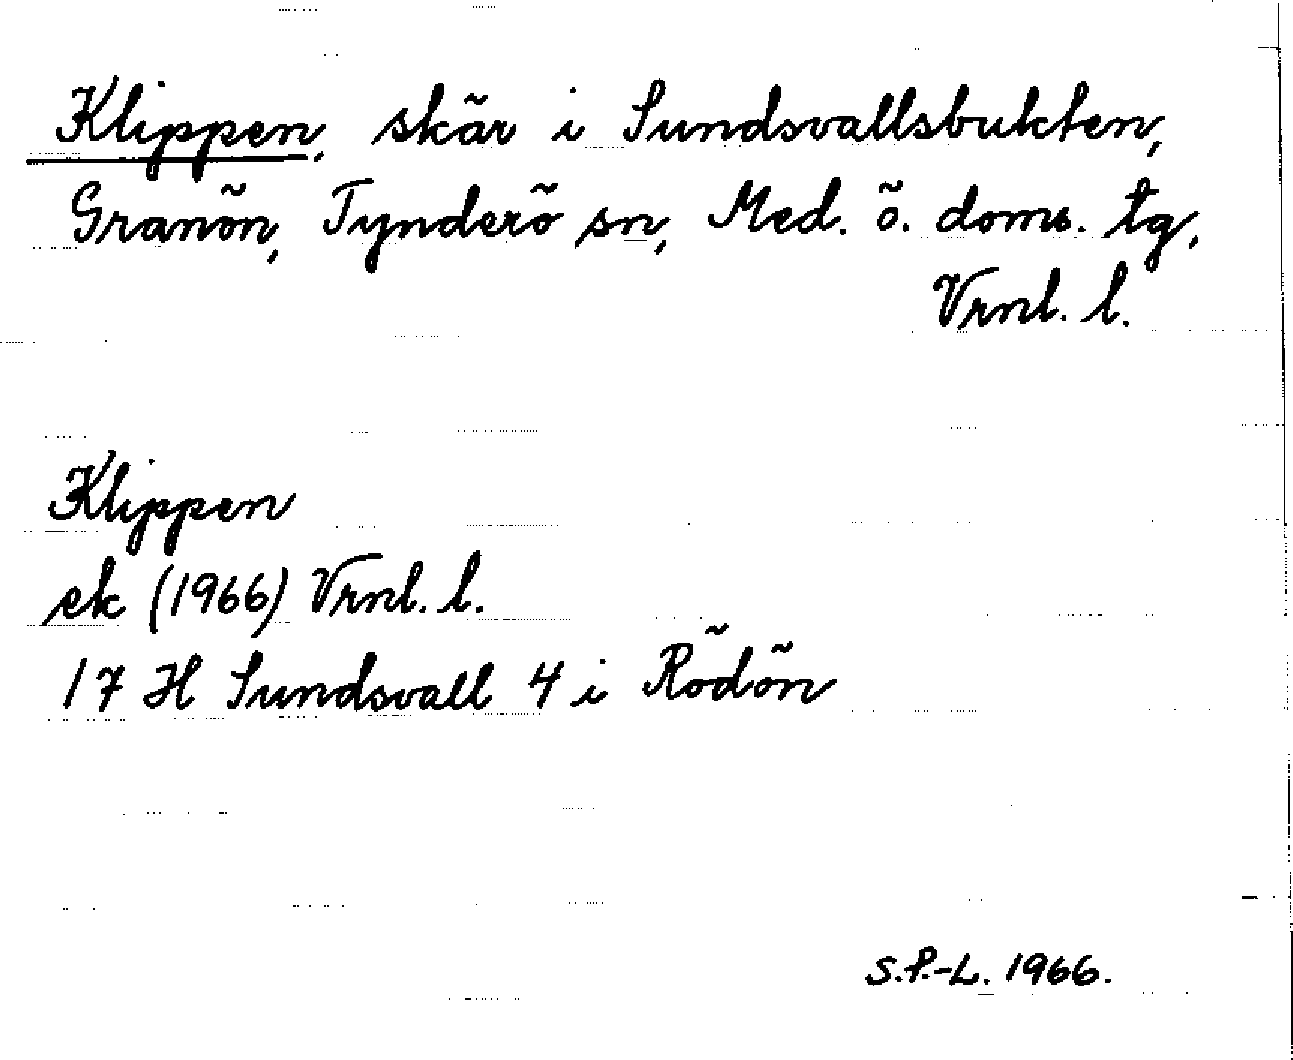 Klippen, skär i Sundsvallsbukten,
Granön, Tynderö sn, Med. ö. doms. tg,
Vrnl. l.
Klippen
ek (1966) Vrnl. l.
17 H Sundsvall 4 i Rödön
S.P.-L. 1966.